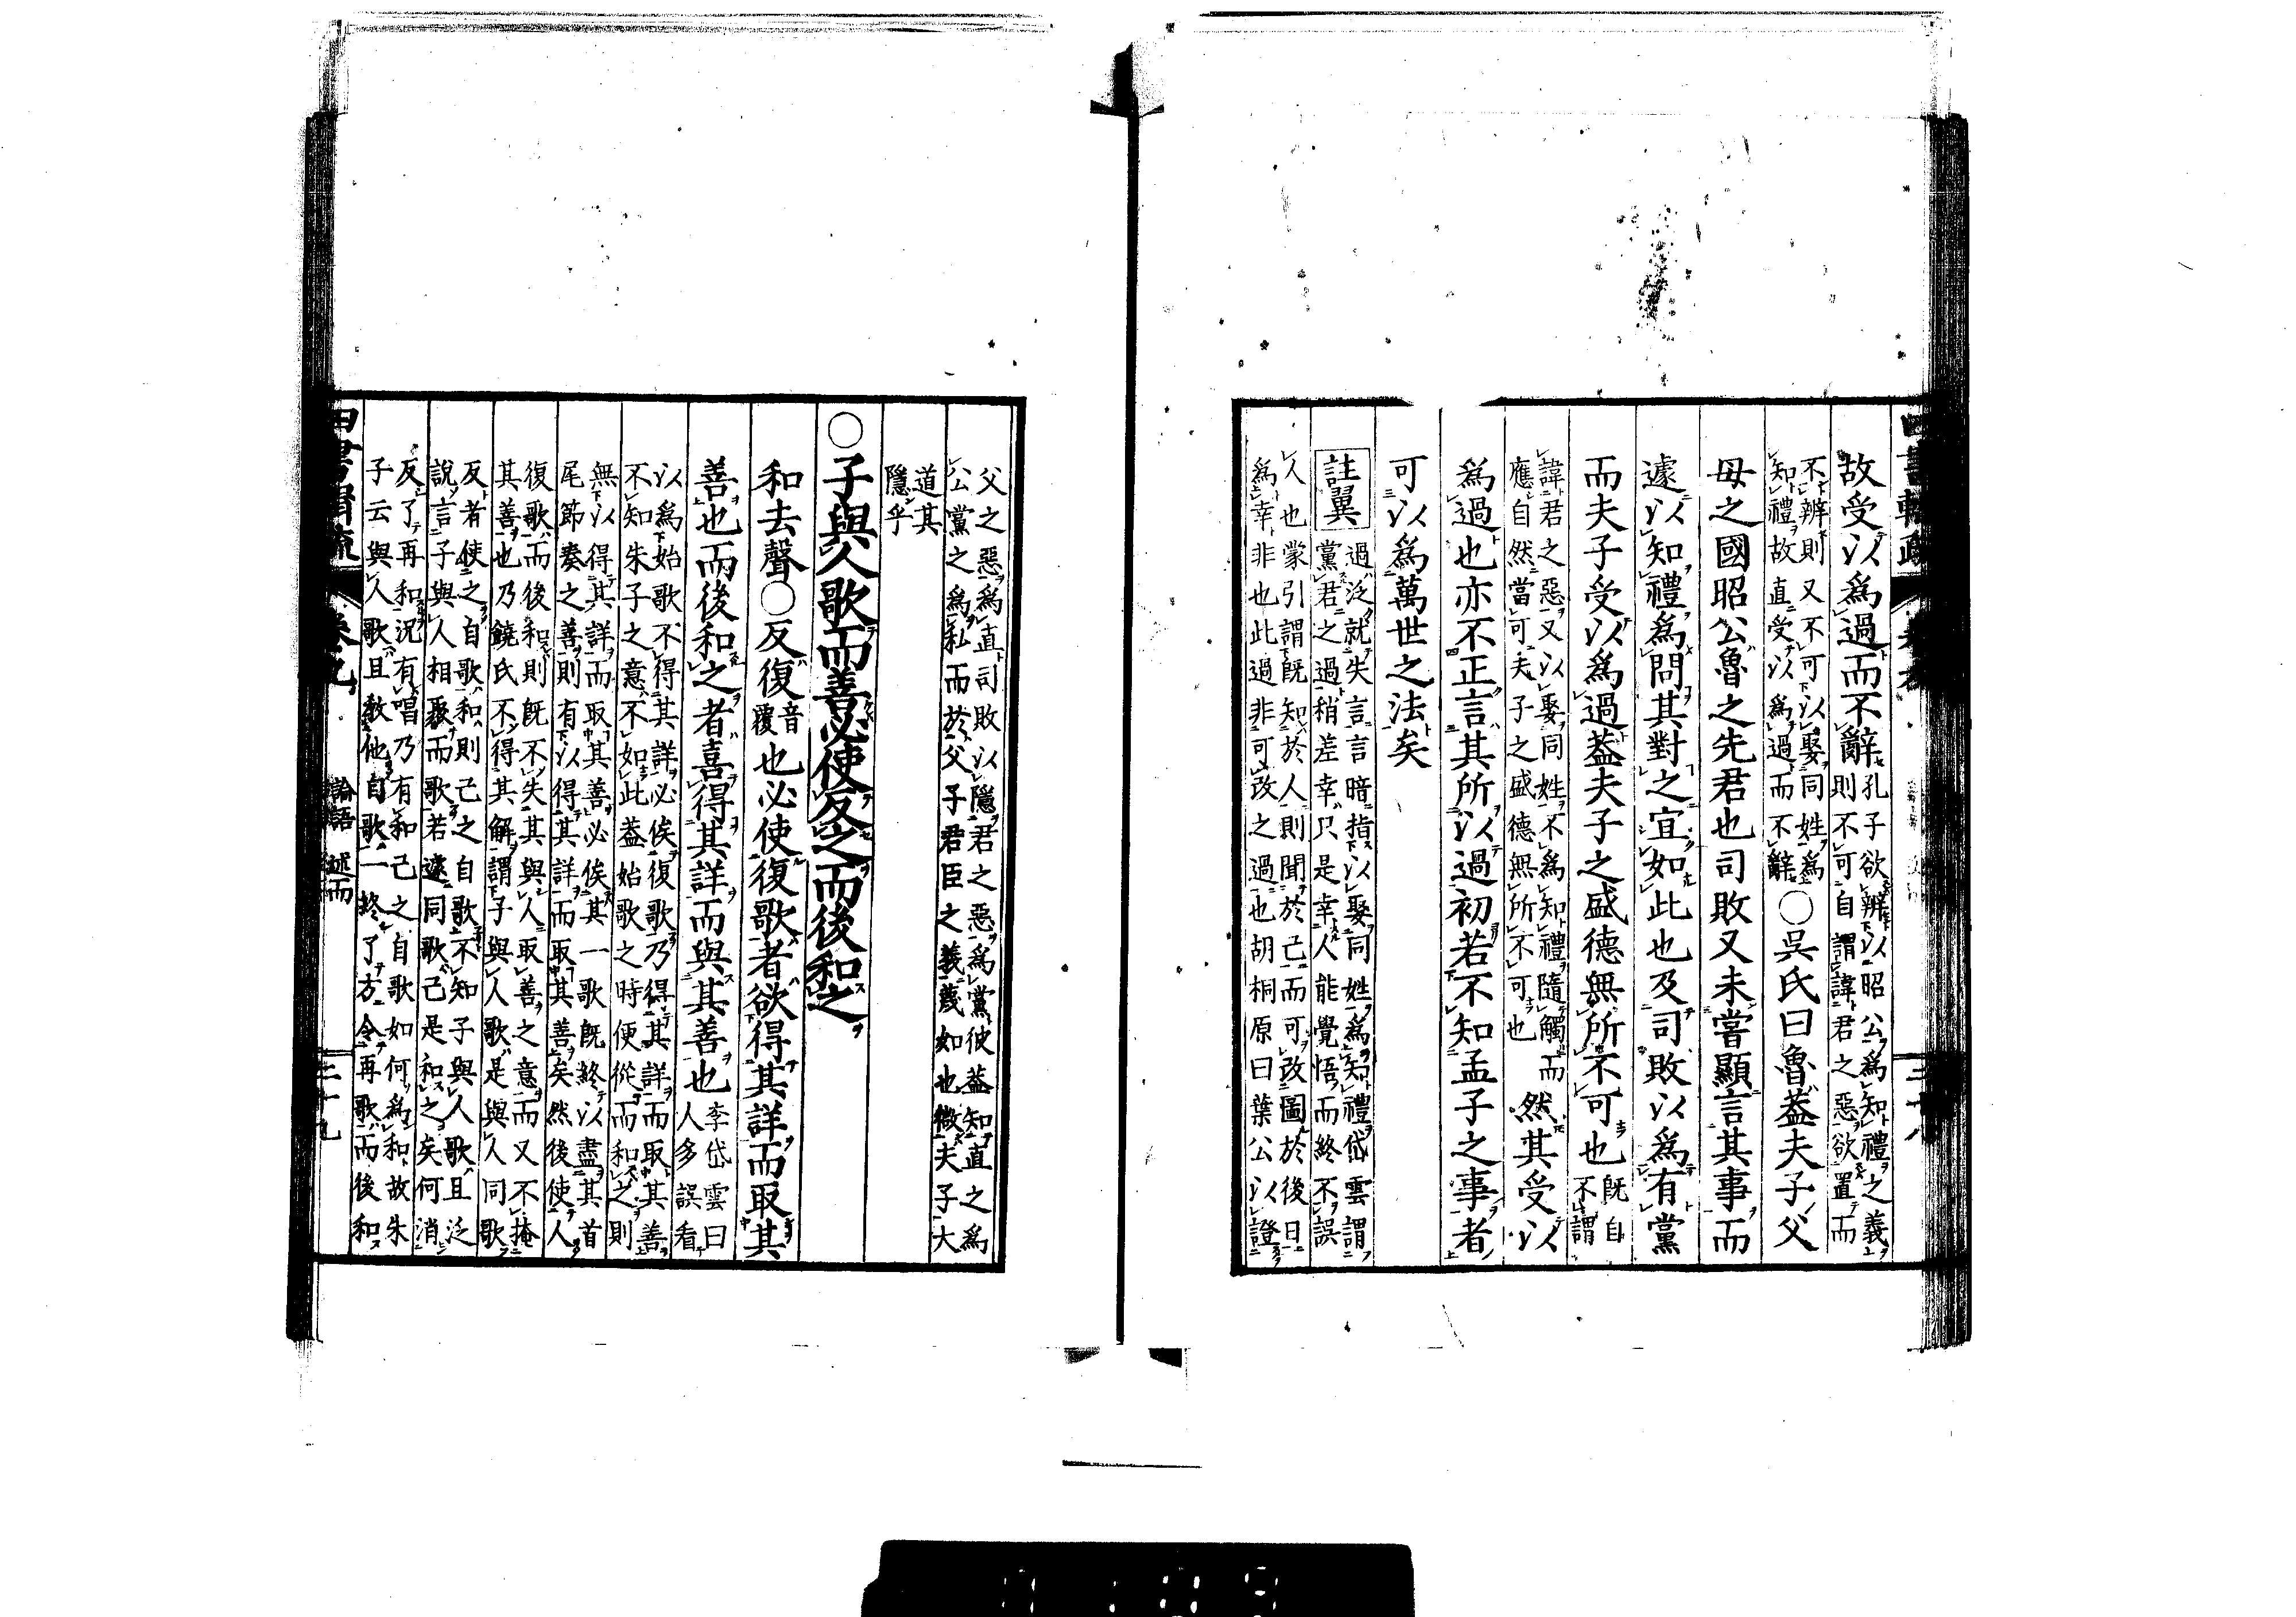 故受以爲過而不辭孔子欲辨以昭公爲知禮之義
則不可自謂諱君之惡欲置而
不辨則又不可以娶同姓爲
知禮故直受以爲過而不辭○吳氏曰魯蓋夫子父
母之國昭公魯之先君也司敗又未嘗顯言其事而
遽以知禮爲問其對之宜如此也及司敗以爲有黨
而夫子受以爲過蓋夫子之盛德無所不可也既自
不謂
諱君之惡又以娶同姓不爲知禮隨觸而
應自然當可夫子之盛德無所不可也然其受以
爲過也亦不正言其所以過初若不知孟子之事者
可以爲萬世之法矣
註翼過泛就失言言暗指以娶同姓爲知禮岱雲謂
黨君之過稍差幸只是幸人能覺悟而終不誤
人也蒙引謂既知於人則聞於己而可改圖於後日
爲幸非也此過非可改之過也胡桐原曰葉公以證
父之惡爲直司敗以隱君之惡爲黨彼蓋知直之爲
公黨之爲私而於父子君臣之義蔑如也微夫子大
道其
隱乎
○子與人歌而善必使反之而後和之
和去聲○反復音
覆也必使復歌者欲得其詳而取其
善也而後和之者喜得其詳而與其善也李岱雲曰
人多誤看
以爲始歌不得其詳必俟復歌乃得其詳而取其善
不知朱子之意不如此蓋始歌之時便從而和之則
無以得其詳而取其善必俟其一歌既終以盡其首
尾節奏之善則有以得其詳而取其善矣然後使人
復歌而後和則既不失其與人取善之意而又不掩
其善也乃饒氏不得其解謂子與人歌是與人同歌
反者使之自歌和則己之自歌不知子與人歌且泛
說言子與人相聚而歌若遽同歌己是和之矣何消
反了再和況有唱乃有和己之自歌如何爲和故朱
子云與人歌且教他自歌一終了方令再歌而後和
四書輯疏 卷九 論語 述而 三十九